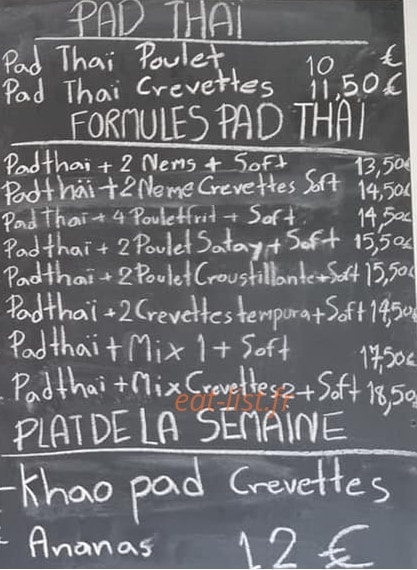 PAD THAÏ
Pad Thaï Poulet 10 €
Pad Thaï Crevettes 11,50€
FORMULES PAD THAÏ
Padthaï + 2 Nems + Soft 13,50€
Padthaï + 2 Neme Crevettes Soft 14,50€
Pad Thaï + 4 Poulet frit + Soft. 14,50€
Padthaï + 2 Poulet Satay + Soft 15,50€
Padthaï + 2 Poulet Croustillante + Soft 15,50€
Padthaï + 2 Crevettes tempura + Soft 17,50€
Padthaï + Mix 1 + Soft 17,50€
Padthaï + Mix Crevettes 2 + Soft 18,50€
eat-list.fr
PLAT DE LA SEMAINE
- Khao pad Crevettes
Ananas 12 €